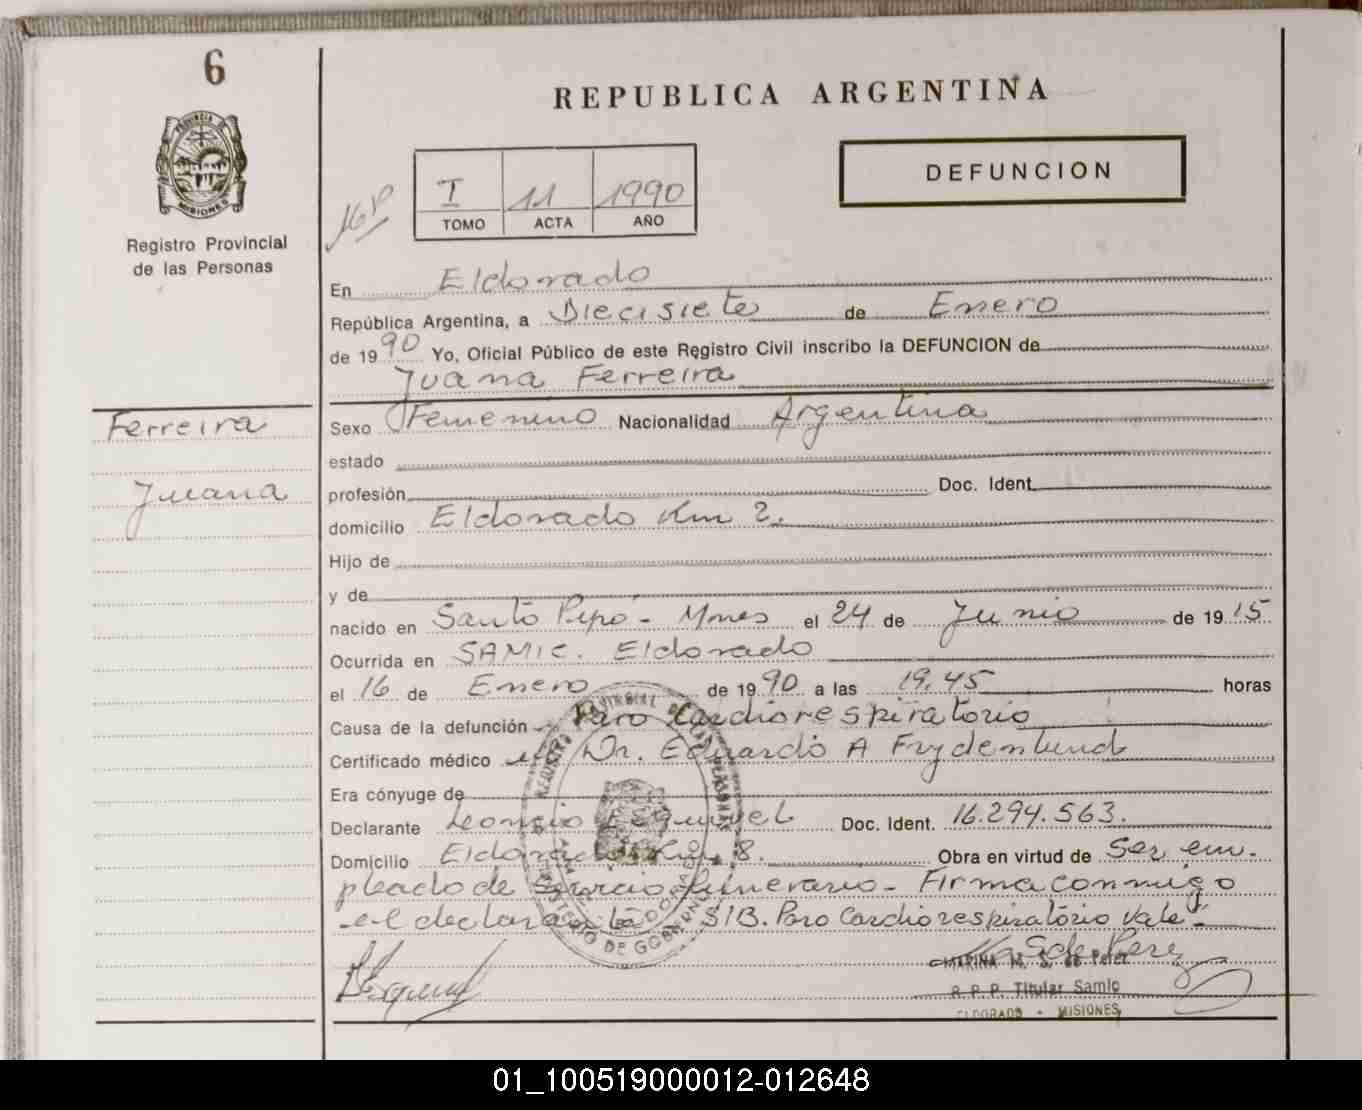 6
REPUBLICA ARGENTINA
PROVINCIA DE
MISIONES
Registro Provincial
de las Personas
DEFUNCION
I 11 1990
TOMO ACTA AÑO
En Eldorado
República Argentina, a Diecisiete de Enero
de 1990 Yo, Oficial Público de este Registro Civil inscribo la DEFUNCION de
Juana Ferreira
Ferreira
Juana
Sexo Femenino Nacionalidad Argentina
estado
profesión Doc. Ident.
domicilio Eldorado Km 2.
Hijo de
y de
nacido en Santo Pipó - Mnes el 24 de Junio de 1915
Ocurrida en SAMIC. Eldorado
el 16 de Enero de 1990 a las 19.45 horas
Causa de la defunción Paro Cardiorespiratorio
Certificado médico Dr. Eduardo A Frydenlund
Era cónyuge de
Declarante Leoncio Esquivel Doc. Ident. 16.294.563.
Domicilio Eldorado Km 8. Obra en virtud de Ser em-
pleado de Servicio funerario - Firma conmigo
el declarante S/B. Paro Cardiorespiratorio Vale -
MARINA M. S. de Perez
R. P. P. Titular Samic
ELDORADO - MISIONES
01_100519000012-012648